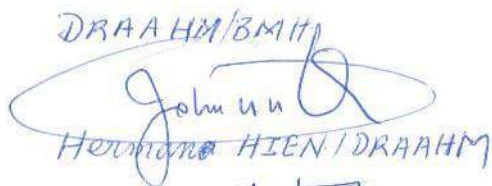 DRAAHM/BMH
Hermann HIEN/DRAAHM